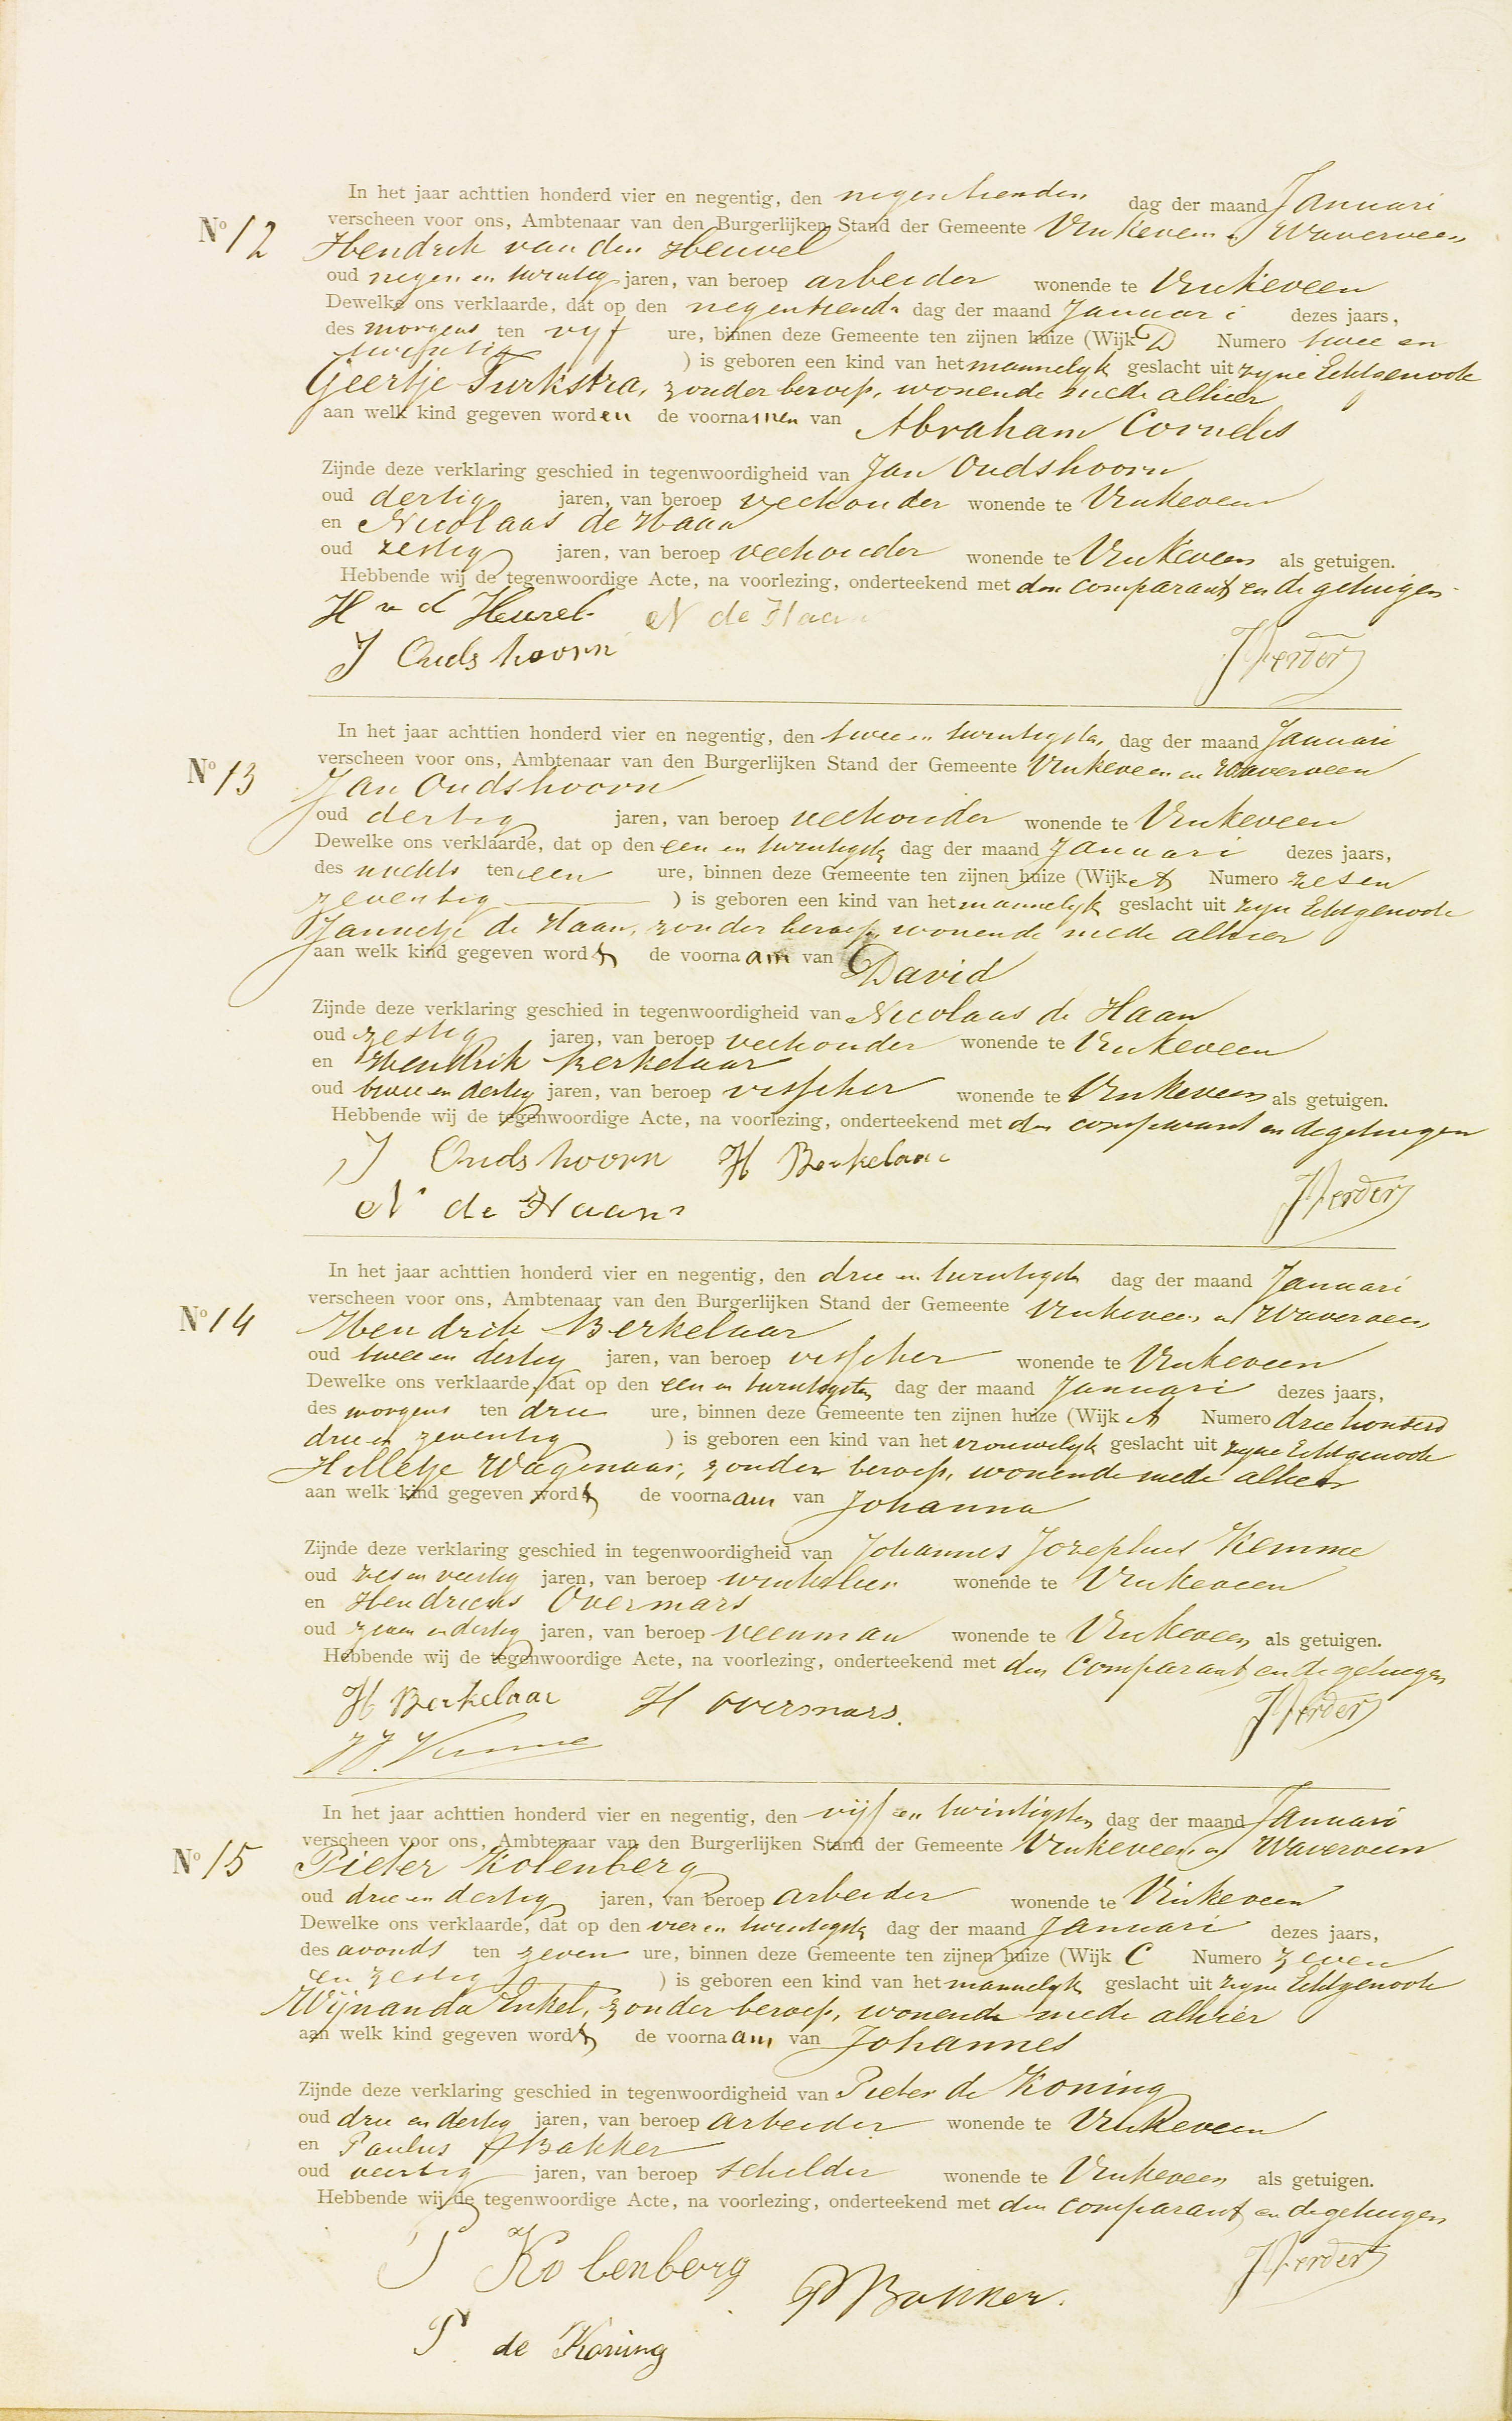 In het jaar achttien honderd vier en negentig, den negentienden dag der maand Januari
No 12 verscheen voor ons, Ambtenaar van den Burgerlijken Stand der Gemeente Vinkeveen en Waverveen
Hendrik van den Heuvel
oud negen en twintig jaren, van beroep arbeider wonende te Vinkeveen
Dewelke ons verklaarde, dat op den negentiende dag der maand Januari dezes jaars,
des morgens ten vijf ure, binnen deze Gemeente ten zijnen huize (Wijk D Numero twee en
twintig ) is geboren een kind van het mannelijk geslacht uit zijne Echtgenoote
Geertje Turkstra, zonder beroep, wonende mede alhier
aan welk kind gegeven worden de voornamen van Abraham Cornelis
Zijnde deze verklaring geschied in tegenwoordigheid van Jan Oudshoorn
oud dertig jaren, van beroep veehouder wonende te Vinkeveen
en Nicolaas de Haan
oud zestig jaren, van beroep veehouder wonende te Vinkeveen als getuigen.
Hebbende wij de tegenwoordige Acte, na voorlezing, onderteekend met den comparant en de getuigen
H v d Heuvel N de Haan
J Oudshoorn
In het jaar achttien honderd vier en negentig, den twee en twintigsten dag der maand Januari
No 13 verscheen voor ons, Ambtenaar van den Burgerlijken Stand der Gemeente Vinkeveen en Waverveen
Jan Oudshoorn
oud dertig jaren, van beroep veehouder wonende te Vinkeveen
Dewelke ons verklaarde, dat op den een en twintigste dag der maand Januari dezes jaars,
des nachts ten een ure, binnen deze Gemeente ten zijnen huize (Wijk A Numero zes en
zeventig ) is geboren een kind van het mannelijk geslacht uit zijne Echtgenoote
Jannetje de Haan, zonder beroep, wonende mede alhier
aan welk kind gegeven wordt de voornaam van David
Zijnde deze verklaring geschied in tegenwoordigheid van Nicolaas de Haan
oud zestig jaren, van beroep veehouder wonende te Vinkeveen
en Hendrik Berkelaar
oud twee en dertig jaren, van beroep visscher wonende te Vinkeveen als getuigen.
Hebbende wij de tegenwoordige Acte, na voorlezing, onderteekend met den comparant en de getuigen
J Oudshoorn H Berkelaar
N de Haan
In het jaar achttien honderd vier en negentig, den drie en twintigste dag der maand Januari
No 14 verscheen voor ons, Ambtenaar van den Burgerlijken Stand der Gemeente Vinkeveen en Waverveen
Hendrik Berkelaar
oud twee en dertig jaren, van beroep visscher wonende te Vinkeveen
Dewelke ons verklaarde, dat op den een en twintigsten dag der maand Januari dezes jaars,
des morgens ten drie ure, binnen deze Gemeente ten zijnen huize (Wijk A Numero drie honderd
drie en zeventig ) is geboren een kind van het vrouwelijk geslacht uit zijne Echtgenoote
Hilletje Wagenaar, zonder beroep, wonende mede alhier
aan welk kind gegeven wordt de voornaam van Johanna
Zijnde deze verklaring geschied in tegenwoordigheid van Johannes Josephus Kemme
oud zes en veertig jaren, van beroep winkelier wonende te Vinkeveen
en Hendricus Overmars
oud zeven en dertig jaren, van beroep veenman wonende te Vinkeveen als getuigen.
Hebbende wij de tegenwoordige Acte, na voorlezing, onderteekend met den Comparant en de getuigen
H Berkelaar H Overmars.
JJ. Kemme
In het jaar achttien honderd vier en negentig, den vijf en twintigsten dag der maand Januari
No 15 verscheen voor ons, Ambtenaar van den Burgerlijken Stand der Gemeente Vinkeveen en Waverveen
Pieter Kolenberg
oud drie en dertig jaren, van beroep arbeider wonende te Vinkeveen
Dewelke ons verklaarde, dat op den vier en twintigste dag der maand Januari dezes jaars,
des avonds ten zeven ure, binnen deze Gemeente ten zijnen huize (Wijk C Numero zeven
en zestig ) is geboren een kind van het mannelijk geslacht uit zijne Echtgenoote
Wijnanda Inkel, zonder beroep, wonende mede alhier
aan welk kind gegeven wordt de voornaam van Johannes
Zijnde deze verklaring geschied in tegenwoordigheid van Pieter de Koning
oud drie en dertig jaren, van beroep arbeider wonende te Vinkeveen
en Paulus Bakker
oud veertig jaren, van beroep schilder wonende te Vinkeveen als getuigen.
Hebbende wij de tegenwoordige Acte, na voorlezing, onderteekend met den comparant en de getuigen
P Kolenberg
P Bakker.
P. de Koning